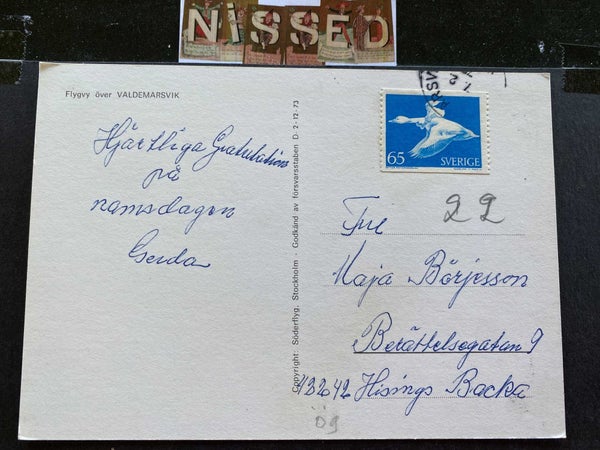 NiSSED
Flygvy över VALDEMARSVIK
Hjärtliga Gratulationer
på
namsdagen
Gerda
Copyright: Söderflyg, Stockholm - Godkänd av försvarsstaben D 2-12-73
RSV
65 SVERIGE
22
Fru
Maja Börjesson
Berättelsegatan 9
42242 Hisings Backa
ög